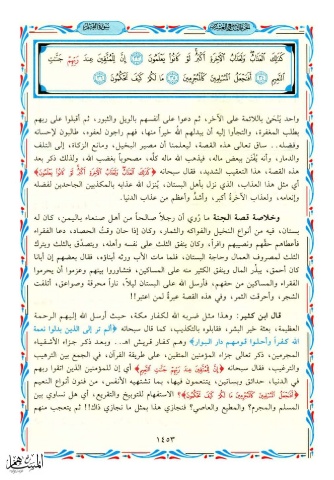 كَذَٰلِكَ الْعَذَابُ وَلَعَذَابُ الْآخِرَةِ أَكْبَرُ لَوْ كَانُوا يَعْلَمُونَ ﴿٣٣﴾ إِنَّ لِلْمُتَّقِينَ عِندَ رَبِّهِمْ جَنَّاتِ
النَّعِيمِ ﴿٣٤﴾ أَفَنَجْعَلُ الْمُسْلِمِينَ كَالْمُجْرِمِينَ ﴿٣٥﴾ مَا لَكُمْ كَيْفَ تَحْكُمُونَ ﴿٣٦﴾
واحد يُنْحِي باللائمة على الآخر، ثم دعوا على أنفسهم بالويل والثبور، ثم أقبلوا على ربهم
بطلب المغفرة، والتجأوا إليه أن يبدلهم الله خيراً منها، فهم راجون لعفوه، طالبون لإحسانه
وفضله.. ساق تعالى هذه القصة، ليعلمنا أن مصير البخيل، ومانع الزكاة، إلى التلف
والدمار، وأنه يَضِنُّ ببعض ماله، فيذهب الله ماله كلَّه، مصحوباً بغضب الله، ولذلك ذكر بعد
هذه القصة، هذا التعقيب الشديد، فقال سبحانه ﴿كَذَٰلِكَ الْعَذَابُ وَلَعَذَابُ الْآخِرَةِ أَكْبَرُ لَوْ كَانُوا يَعْلَمُونَ﴾
أي مثل هذا العذاب، الذي نزل بأهل البستان، يُنزل الله عذابه بالمكذبين الجاحدين لفضله
وإنعامه، ولعذاب الآخرةُ أكبر، وأشدُّ وأعظم من عذاب الدنيا.
وخلاصة قصة الجنة ما رُوي أن رجلاً صالحاً من أهل صنعاء باليمن، كان له
بستان، فيه من أنواع النخيل والفواكه والثمار، وكان إذا حان وقتُ الحصاد، دعا الفقراء
فأعطاهم حظَّهم ونصيبهم وافراً، وكان ينفق الثلث على نفسه وأهله، ويتصدَّق بالثلث ويترك
الثلث لمصروف العمال وحاجة البستان، فلما مات الأب ورثه أبناؤه، فقال بعضهم إن أبانا
كان أحمق، يبذِّر المال وينفق الكثير منه على المساكين، فتشاوروا بينهم وعزموا أن يحرموا
الفقراء والمساكين من حقهم، فأرسل الله على البستان ليلاً، ناراً محرقة وصواعق، أتلفت
الشجر، وأحرقت الثمر، وفي هذه القصة عبرةٌ لمن اعتبر!!
قال ابن كثير: وهذا مثل ضربه الله لكفار مكة، حيث أرسل الله إليهم الرحمة
العظيمة، بعثة خير البشر، فقابلوه بالتكذيب، كما قال سبحانه ﴿ألم تر إلى الذين بدلوا نعمة
الله كفراً وأحلوا قومهم دار البوار﴾ وهم كفار قريش اهـ.. وبعد ذكر جزاء الأشقياء
المجرمين، ذكر تعالى جزاء المؤمنين المتقين، على طريقة القرآن، في الجمع بين الترهيب
والترغيب، فقال سبحانه ﴿إِنَّ لِلْمُتَّقِينَ عِندَ رَبِّهِمْ جَنَّاتِ النَّعِيمِ﴾ أي إن للمؤمنين الذين اتقوا ربهم
في الدنيا، حدائق وبساتين، يتنعمون فيها، بما تشتهيه الأنفس، من فنون أنواع النعيم
﴿أَفَنَجْعَلُ الْمُسْلِمِينَ كَالْمُجْرِمِينَ مَا لَكُمْ كَيْفَ تَحْكُمُونَ﴾؟ الاستفهام للتوبيخ والتقريع، أي هل نساوي بين
المسلم والمجرم؟ والمطيع والعاصي؟ فنجازي هذا بمثل ما نجازي ذاك!! ثم يتعجب منهم
١٤٥٣